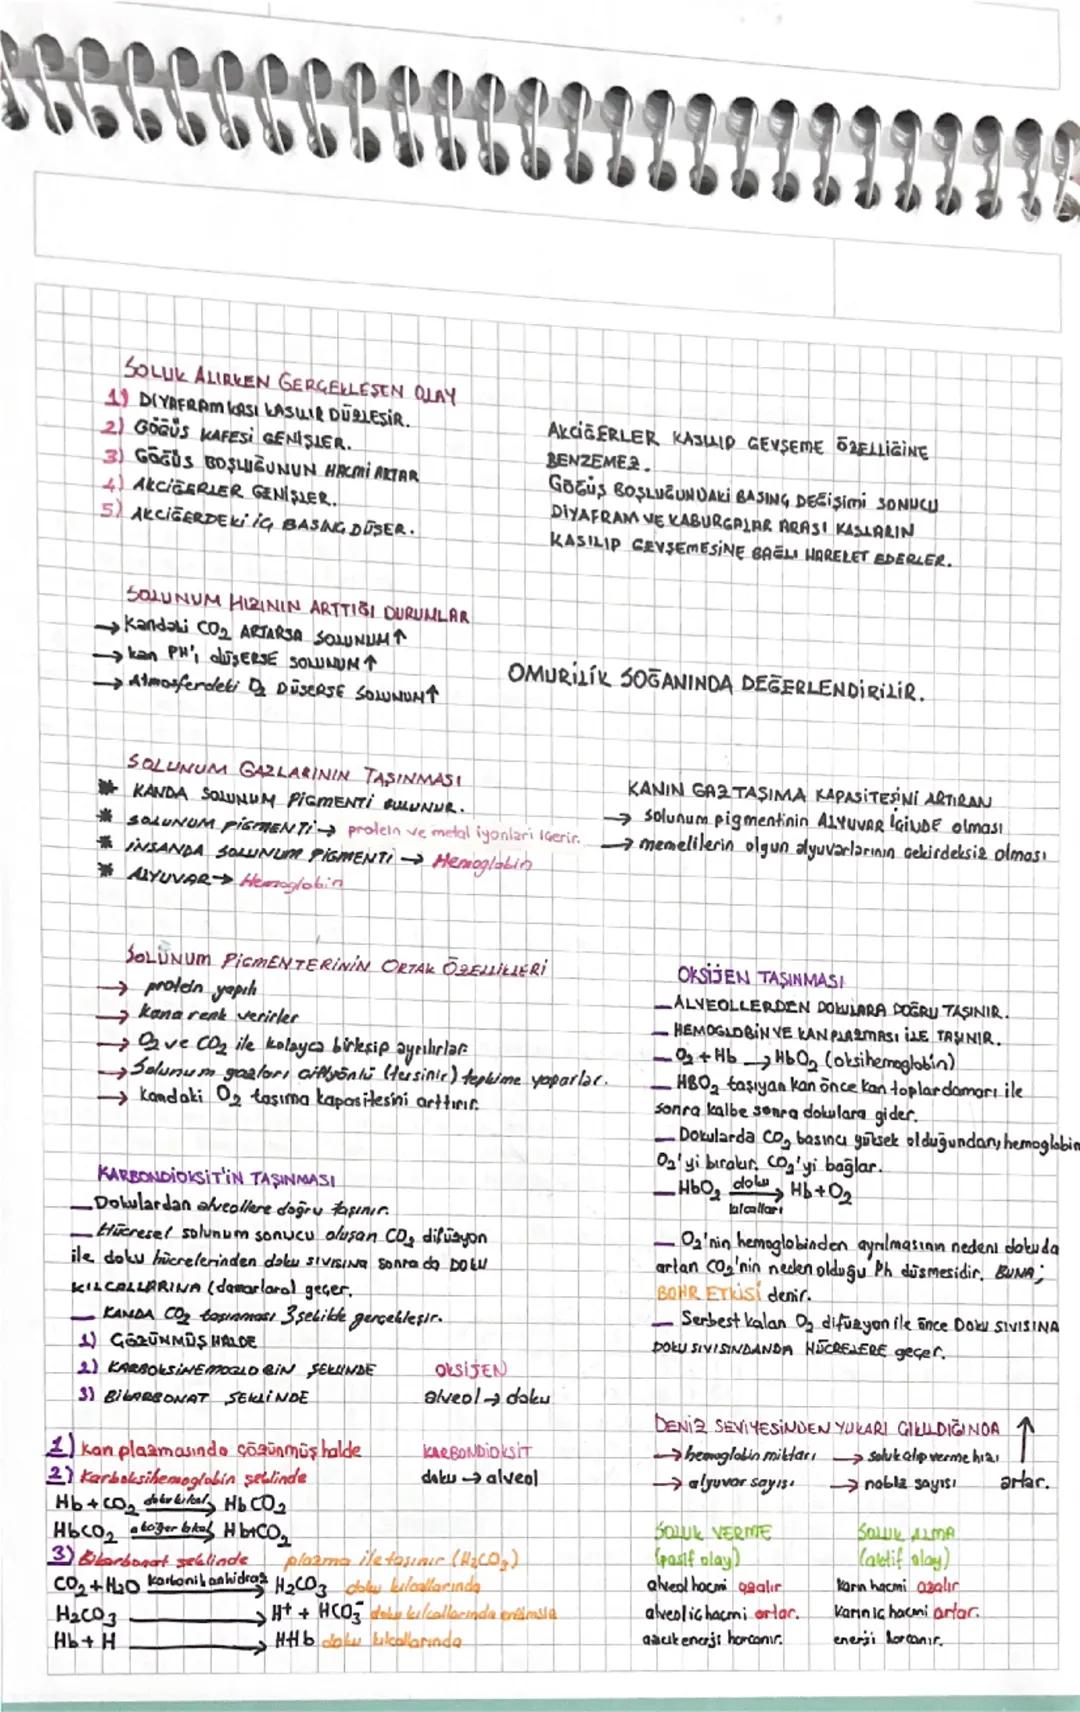 SOLUK ALIRKEN GERÇEKLEŞEN OLAY
1) DİYAFRAM KASI KASILIR DÜZLEŞİR.
2) GÖĞÜS KAFESİ GENİŞLER.
3) GÖĞÜS BOŞLUĞUNUN HACMİ ARTAR
4) AKCİĞERLER GENİŞLER.
5) AKCİĞERDEKİ İÇ BASINÇ DÜŞER.
AKCİĞERLER KASILIP GEVŞEME ÖZELLİĞİNE
BENZEMEZ.
GÖĞÜS BOŞLUĞUNDAKİ BASINÇ DEĞİŞİMİ SONUCU
DİYAFRAM VE KABURGALAR ARASI KASLARIN
KASILIP GEVŞEMESİNE BAĞLI HAREKET EDERLER.
SOLUNUM HIZININ ARTTIĞI DURUMLAR
→ Kandaki CO₂ ARTARSA SOLUNUM↑
→ kan PH'ı düŞERSE SOLUNUM↑
→ Atmosferdeki O₂ DÜŞERSE SOLUNUM↑
OMURİLİK SOĞANINDA DEĞERLENDİRİLİR.
SOLUNUM GAZLARININ TAŞINMASI
* KANDA SOLUNUM PİGMENTİ BULUNUR.
* SOLUNUM PİGMENTİ→ protein ve metal iyonları içerir.
* İNSANDA SOLUNUM PİGMENTİ → Hemoglobin
* ALYUVAR→ Hemoglobin
KANIN GAZ TAŞIMA KAPASİTESİNİ ARTIRAN
→ Solunum pigmentinin ALYUVAR İÇİNDE olması
→ memelilerin olgun alyuvarlarının çekirdeksiz olması
SOLUNUM PİGMENTERİNİN ORTAK ÖZELLİKLERİ
→ protein yapılı
→ Kana renk verirler
→ O₂ ve CO₂ ile kolayca birleşip ayrılırlar.
→ Solunum gazları çiftyönlü (tersinir) tepkime yaparlar.
→ Kandaki O₂ taşıma kapasitesini arttırır.
OKSİJEN TAŞINMASI
— ALVEOLLERDEN DOKULARA DOĞRU TAŞINIR.
— HEMOGLOBİN VE KAN PLAZMASI İLE TAŞINIR.
— O₂ + Hb → HbO₂ (oksihemoglobin)
— HBO₂ taşıyan kan önce kan toplardamarı ile
sonra kalbe sonra dokulara gider.
— Dokularda CO₂ basıncı yüksek olduğundan, hemoglobin
O₂'yi bırakır. CO₂'yi bağlar.
— HbO₂ doku kılcalları → Hb+O₂
— O₂'nin hemoglobinden ayrılmasının nedeni dokuda
artan CO₂'nin neden olduğu Ph düşmesidir. BUNA;
BOHR ETKİSİ denir.
— Serbest kalan O₂ difüzyon ile önce Doku SIVISINA
DOKU SIVISINDANDA HÜCRELERE geçer.
KARBONDİOKSİT'İN TAŞINMASI
— Dokulardan alveollere doğru taşınır.
— Hücresel solunum sonucu oluşan CO₂ difüzyon
ile doku hücrelerinden doku SIVISINA sonra da DOKU
KILCALLARINA (damarlara) geçer.
— KANDA CO₂ taşınması 3 şekilde gerçekleşir.
1) ÇÖZÜNMÜŞ HALDE
2) KARBOKSİHEMOGLOBİN ŞEKLİNDE
3) BİKARBONAT ŞEKLİNDE
OKSİJEN
alveol → doku
KARBONDİOKSİT
doku → alveol
1) Kan plazmasında çözünmüş halde
2) Karboksihemoglobin şeklinde
Hb + CO₂ doku kılcal → HbCO₂
HbCO₂ akciğer kılcal → Hb+CO₂
3) Bikarbonat şeklinde plazma ile taşınır (H₂CO₃)
CO₂ + H₂O Karbonik anhidraz → H₂CO₃ doku kılcallarında
H₂CO₃ → H⁺ + HCO₃⁻ doku kılcallarında enzimsiz
Hb + H → HHb doku kılcallarında
DENİZ SEVİYESİNDEN YUKARI ÇIKILDIĞINDA ↑
→ hemoglobin miktarı → soluk alıp verme hızı
→ alyuvar sayısı → nabız sayısı artar.
SOLUK VERME
(pasif olay)
alveol hacmi azalır
alveol iç hacmi artar.
azıcık enerji harcanır.
SOLUK ALMA
(aktif olay)
Karın hacmi azalır
Karın iç hacmi artar.
enerji harcanır.